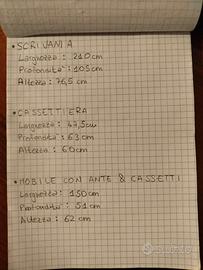 • SCRIVANIA
Larghezza : 210cm
Profondità : 105cm
Altezza : 76,5 cm
• CASSETTIERA
Larghezza : 47,5cm
Profondità : 63cm
Altezza : 60cm
• MOBILE CON ANTE & CASSETTI
Larghezza : 150cm
Profondità : 51cm
Altezza : 62 cm
subito